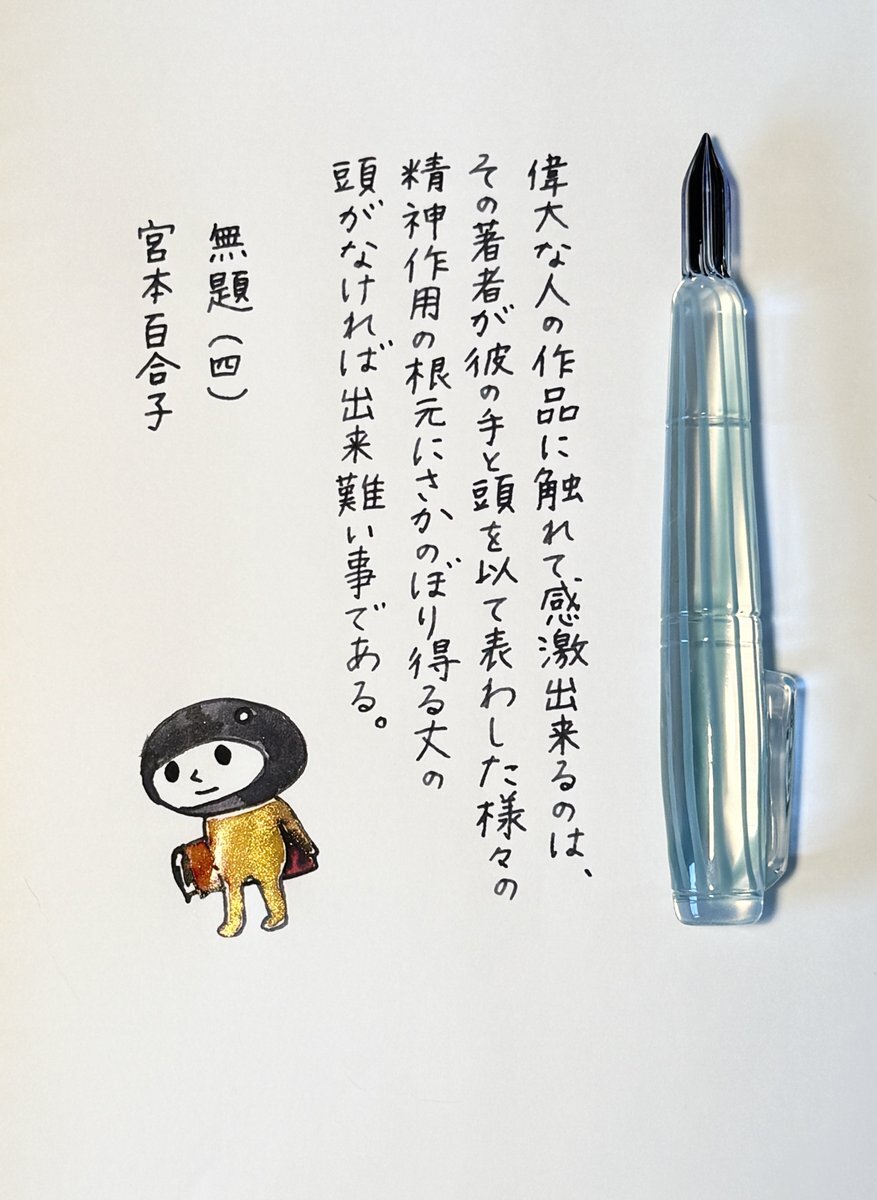 偉大な人の作品に触れて感激出来るのは、
その著者が彼の手と頭を以て表わした様々の
精神作用の根元にさかのぼり得る丈の
頭がなければ出来難い事である。
無題(四)
宮本百合子